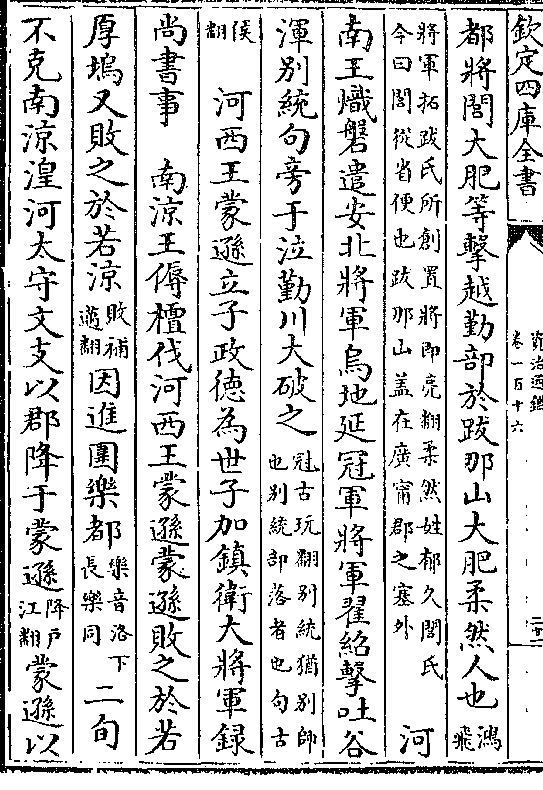 欽定四庫全書
資治通鑑
卷一百十六
二十二
都將閭大肥等擊越勤部於跋那山大肥柔然人也鴻飛
將軍拓跋氏所創置將即亮翻柔然姓郁久閭氏
今曰閭從省便也跋那山盖在廣甯郡之塞外
河
南王熾磐遣安北將軍烏地延冠軍將軍翟紹擊吐谷
渾別統句旁于泣勤川大破之冠古玩翻別統猶別帥也別統部落者也句古
侯翻 河西王蒙遜立子政德為世子加鎮衛大將軍録
尚書事 南涼王傉檀伐河西王蒙遜蒙遜敗之於若
厚塢又敗之於若涼敗補邁翻因進圍樂都樂音洛下長樂同二旬
不克南涼湟河太守文支以郡降于蒙遜降戶江翻蒙遜以